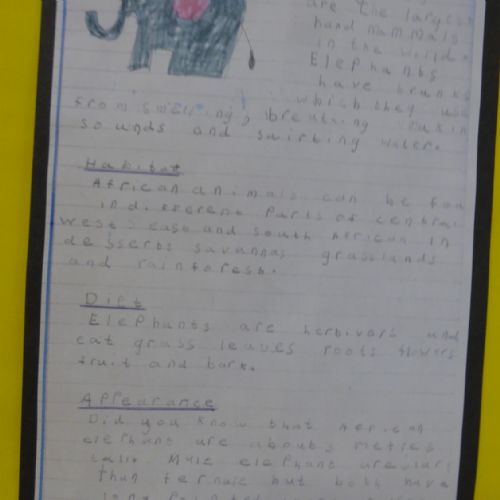 are the largest
hand mammals
in the world.
Elephants
have trunks
which they use
from smelling, breathing makin
sounds and swirting water.
Habitat
African animals can be fou
in different parts of central
west, east and south African in
desserts savannas grasslands
and rainforest.
Diet
Elephants are herbivors and
eat grass leaves roots flowers
fruit and bark.
Appearance
Did you know that African
elephant are about 3 metres
tall. Male elephant are larg
than female but both have
long pointed